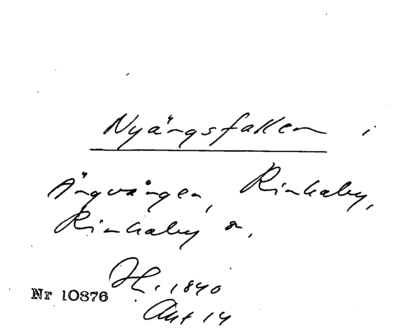 Nyängsfallen i
Ängvången, Rinkaby,
Rinkaby s.
H. 1840
Nr 10876
Akt 14